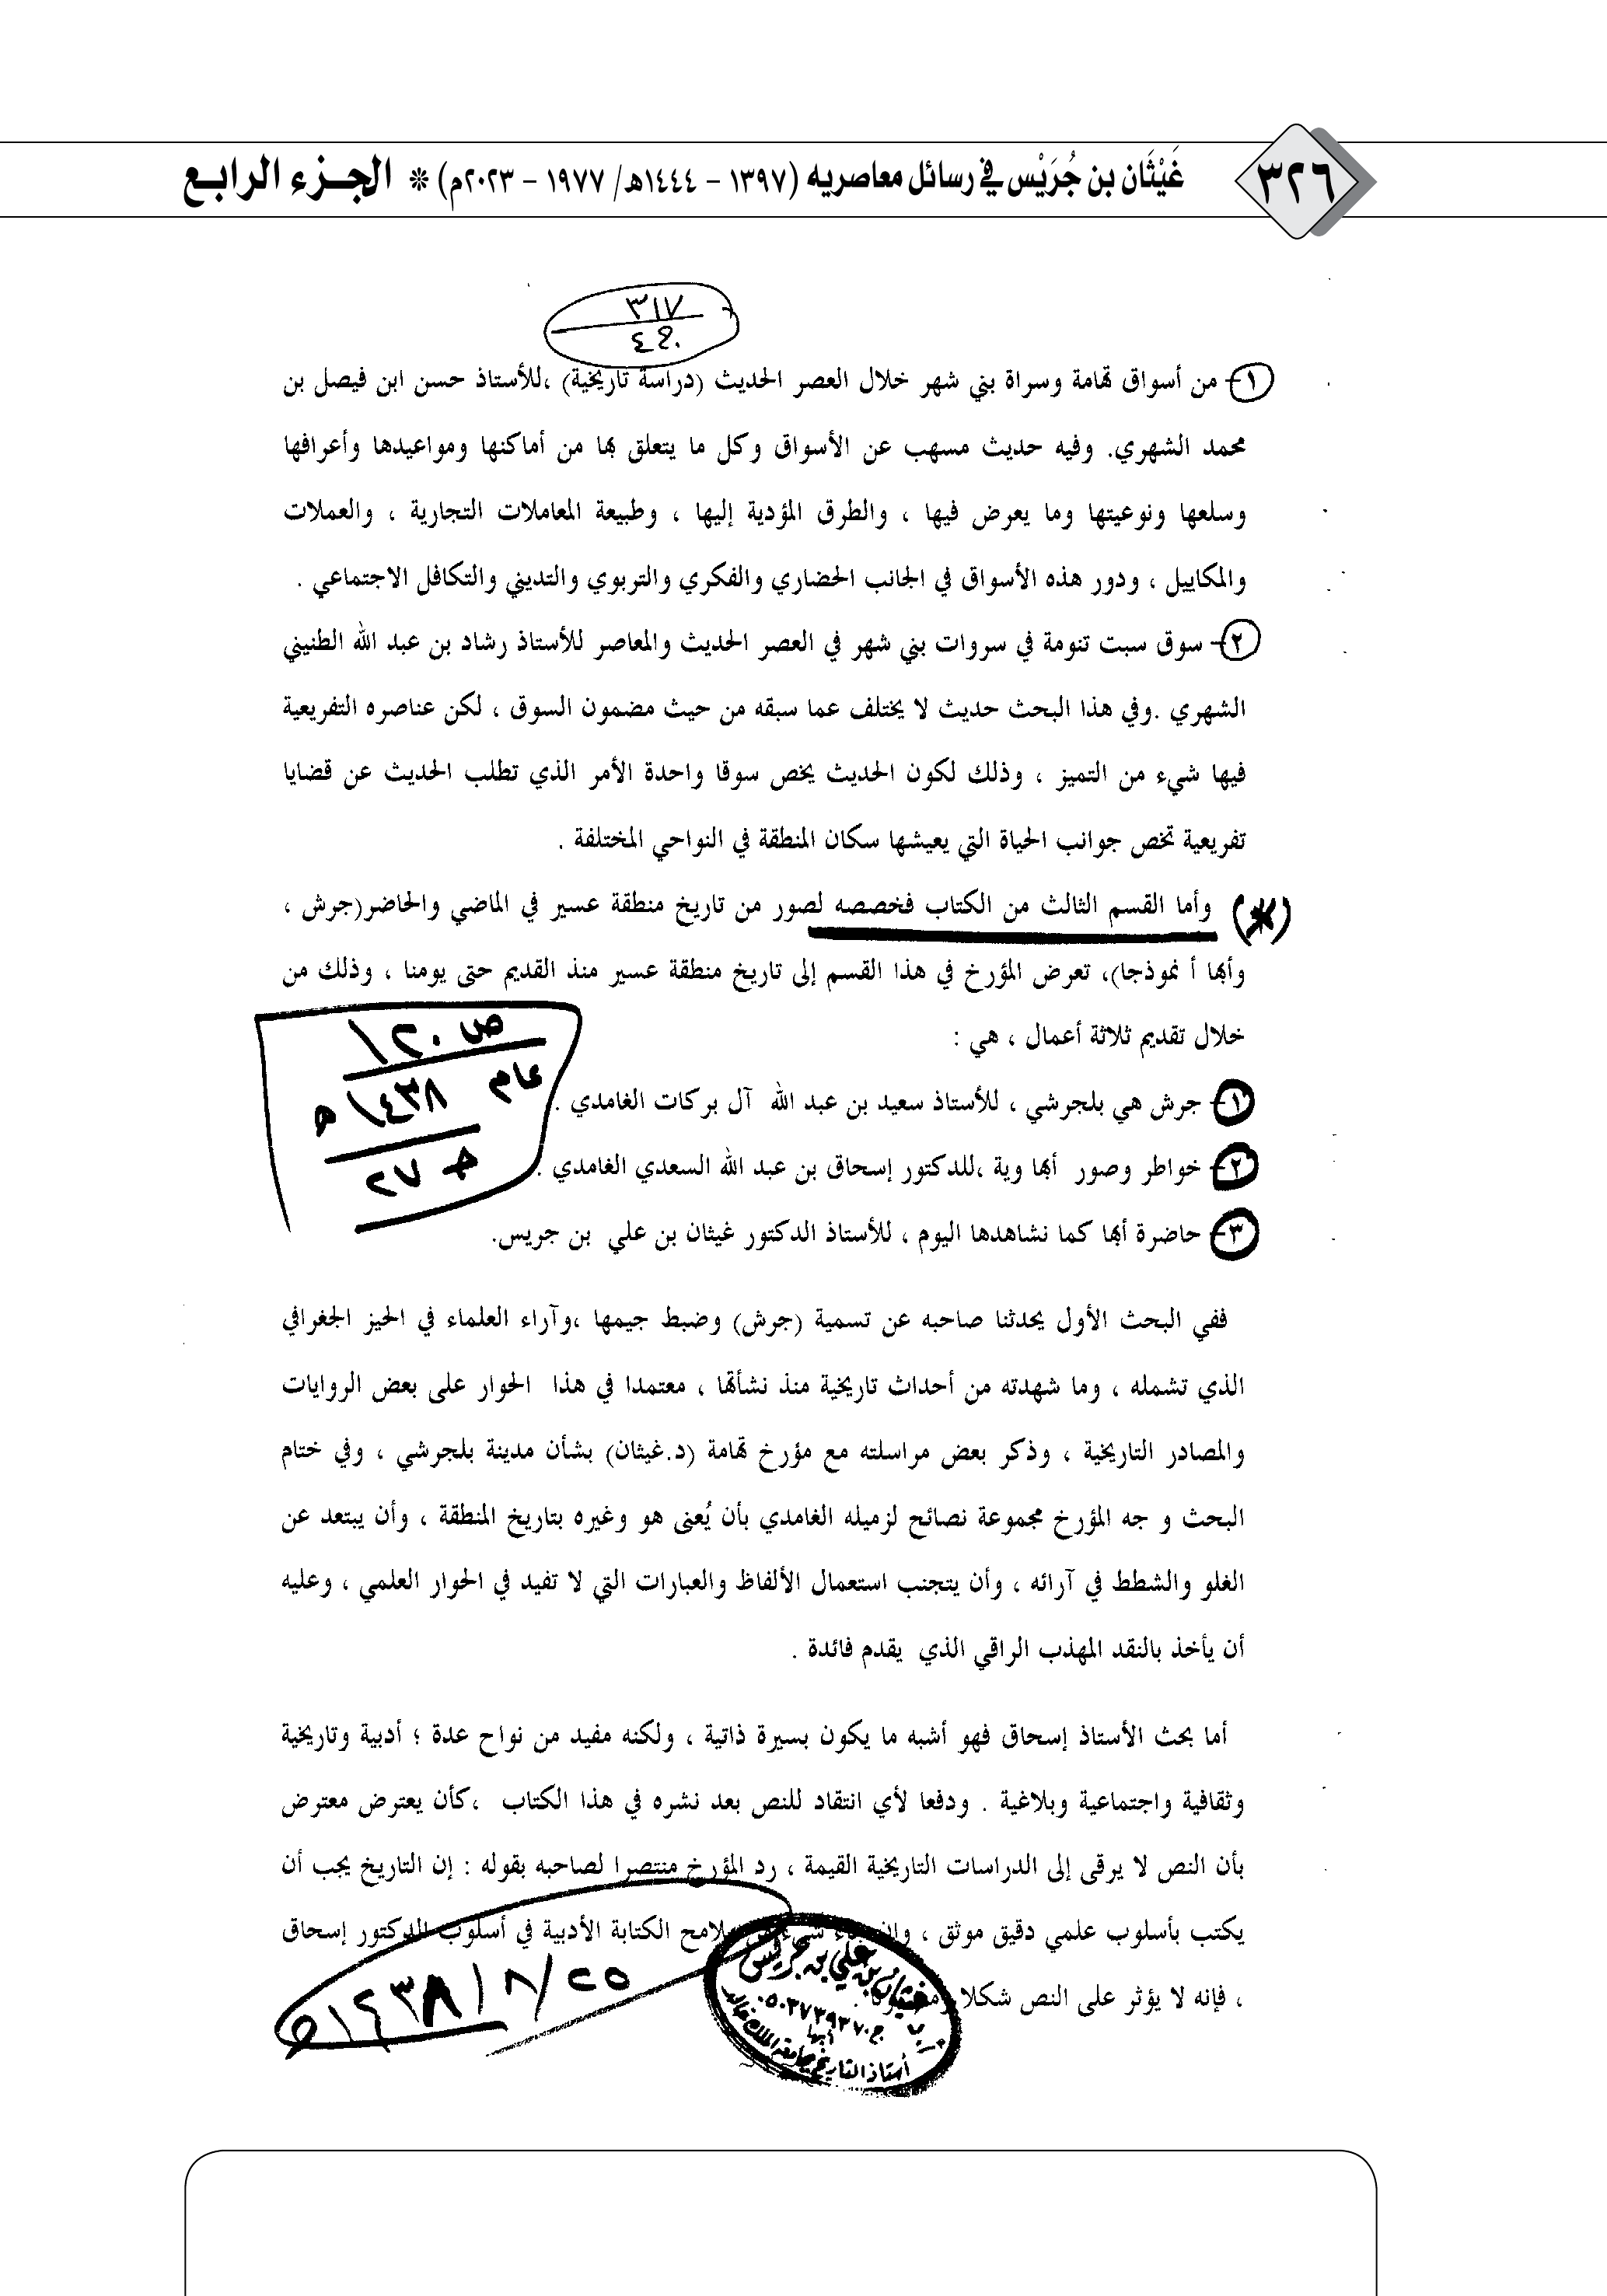 ٣٢٦
غَيْثَان بن جُرَيْس في رسائل معاصريه (١٣٩٧ - ١٤٤٤هـ/ ١٩٧٧ - ٢٠٢٣م) * الجــزء الرابـع
٣١٧
١- من أسواق تهامة وسراة بني شهر خلال العصر الحديث (دراسة تاريخية) ،للأستاذ حسن ابن فيصل بن
محمد الشهري. وفيه حديث مسهب عن الأسواق وكل ما يتعلق بها من أماكنها ومواعيدها وأعرافها
وسلعها ونوعيتها وما يعرض فيها ، والطرق المؤدية إليها ، وطبيعة المعاملات التجارية ، والعملات
والمكاييل ، ودور هذه الأسواق في الجانب الحضاري والفكري والتربوي والتديني والتكافل الاجتماعي .
٢- سوق سبت تنومة في سروات بني شهر في العصر الحديث والمعاصر للأستاذ رشاد بن عبد الله الطنيني
الشهري .وفي هذا البحث حديث لا يختلف عما سبقه من حيث مضمون السوق ، لكن عناصره التفريعية
فيها شيء من التميز ، وذلك لكون الحديث يخص سوقا واحدة الأمر الذي تطلب الحديث عن قضايا
تفريعية تخص جوانب الحياة التي يعيشها سكان المنطقة في النواحي المختلفة .
(*) وأما القسم الثالث من الكتاب فخصصه لصور من تاريخ منطقة عسير في الماضي والحاضر(جرش ،
وأبها أ نموذجا)، تعرض المؤرخ في هذا القسم إلى تاريخ منطقة عسير منذ القديم حتى يومنا ، وذلك من
خلال تقديم ثلاثة أعمال ، هي :
ص ١٢٠
عام ١٤٣٨ هـ
جـ ٢٧
١- جرش هي بلجرشي ، للأستاذ سعيد بن عبد الله آل بركات الغامدي .
٢- خواطر وصور أبها وية ،للدكتور إسحاق بن عبد الله السعدي الغامدي .
٣- حاضرة أبها كما نشاهدها اليوم ، للأستاذ الدكتور غيثان بن علي بن جريس.
ففي البحث الأول يحدثنا صاحبه عن تسمية (جرش) وضبط جيمها ،وآراء العلماء في الحيز الجغرافي
الذي تشمله ، وما شهدته من أحداث تاريخية منذ نشأتها ، معتمدا في هذا الحوار على بعض الروايات
والمصادر التاريخية ، وذكر بعض مراسلته مع مؤرخ تهامة (د.غيثان) بشأن مدينة بلجرشي ، وفي ختام
البحث و جه المؤرخ مجموعة نصائح لزميله الغامدي بأن يُعنى هو وغيره بتاريخ المنطقة ، وأن يبتعد عن
الغلو والشطط في آرائه ، وأن يتجنب استعمال الألفاظ والعبارات التي لا تفيد في الحوار العلمي ، وعليه
أن يأخذ بالنقد المهذب الراقي الذي يقدم فائدة .
أما بحث الأستاذ إسحاق فهو أشبه ما يكون بسيرة ذاتية ، ولكنه مفيد من نواح عدة ؛ أدبية وتاريخية
وثقافية واجتماعية وبلاغية . ودفعا لأي انتقاد للنص بعد نشره في هذا الكتاب ،كأن يعترض معترض
بأن النص لا يرقى إلى الدراسات التاريخية القيمة ، رد المؤرخ منتصرا لصاحبه بقوله : إن التاريخ يجب أن
يكتب بأسلوب علمي دقيق موثق ، وإن جاء شيء من ملامح الكتابة الأدبية في أسلوب الدكتور إسحاق
، فإنه لا يؤثر على النص شكلا ومضمونا .
٢٥ / ٨ / ١٤٣٨هـ
غيثان بن علي بن جريس
ج٠٥٠٣٧٣٩٣٧٠
أبها
أستاذ التاريخ بجامعة الملك خالد